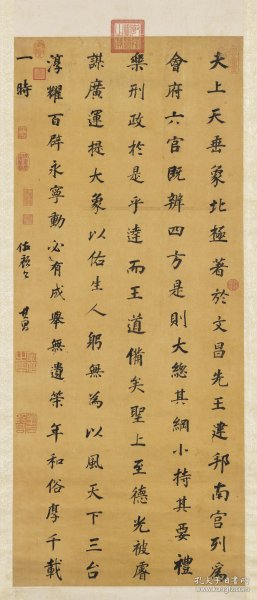 夫上天垂象北極著於文昌先王建邦南宮列爲
會府六官既辨四方是則大總其綱小持其要禮
樂刑政於是乎達而王道備矣聖上至德光被睿
謀廣運提大象以佑生人躬無為以風天下三台
淳耀百辟永寧動必有成舉無遺策年和俗厚千載
一時